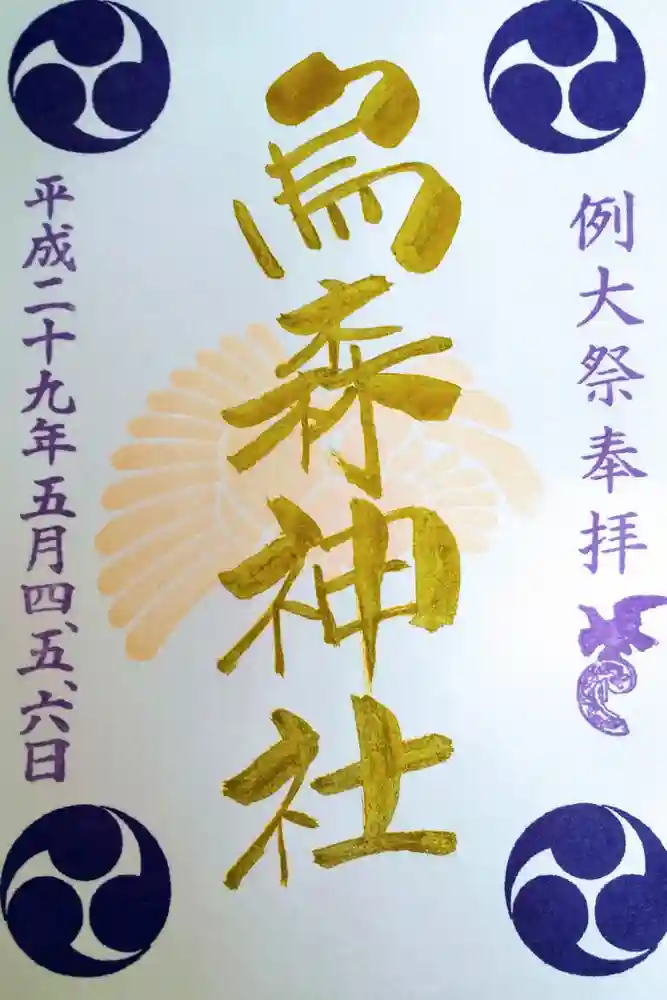 例大祭奉拝
烏森神社
平成二十九年五月四、五、六日